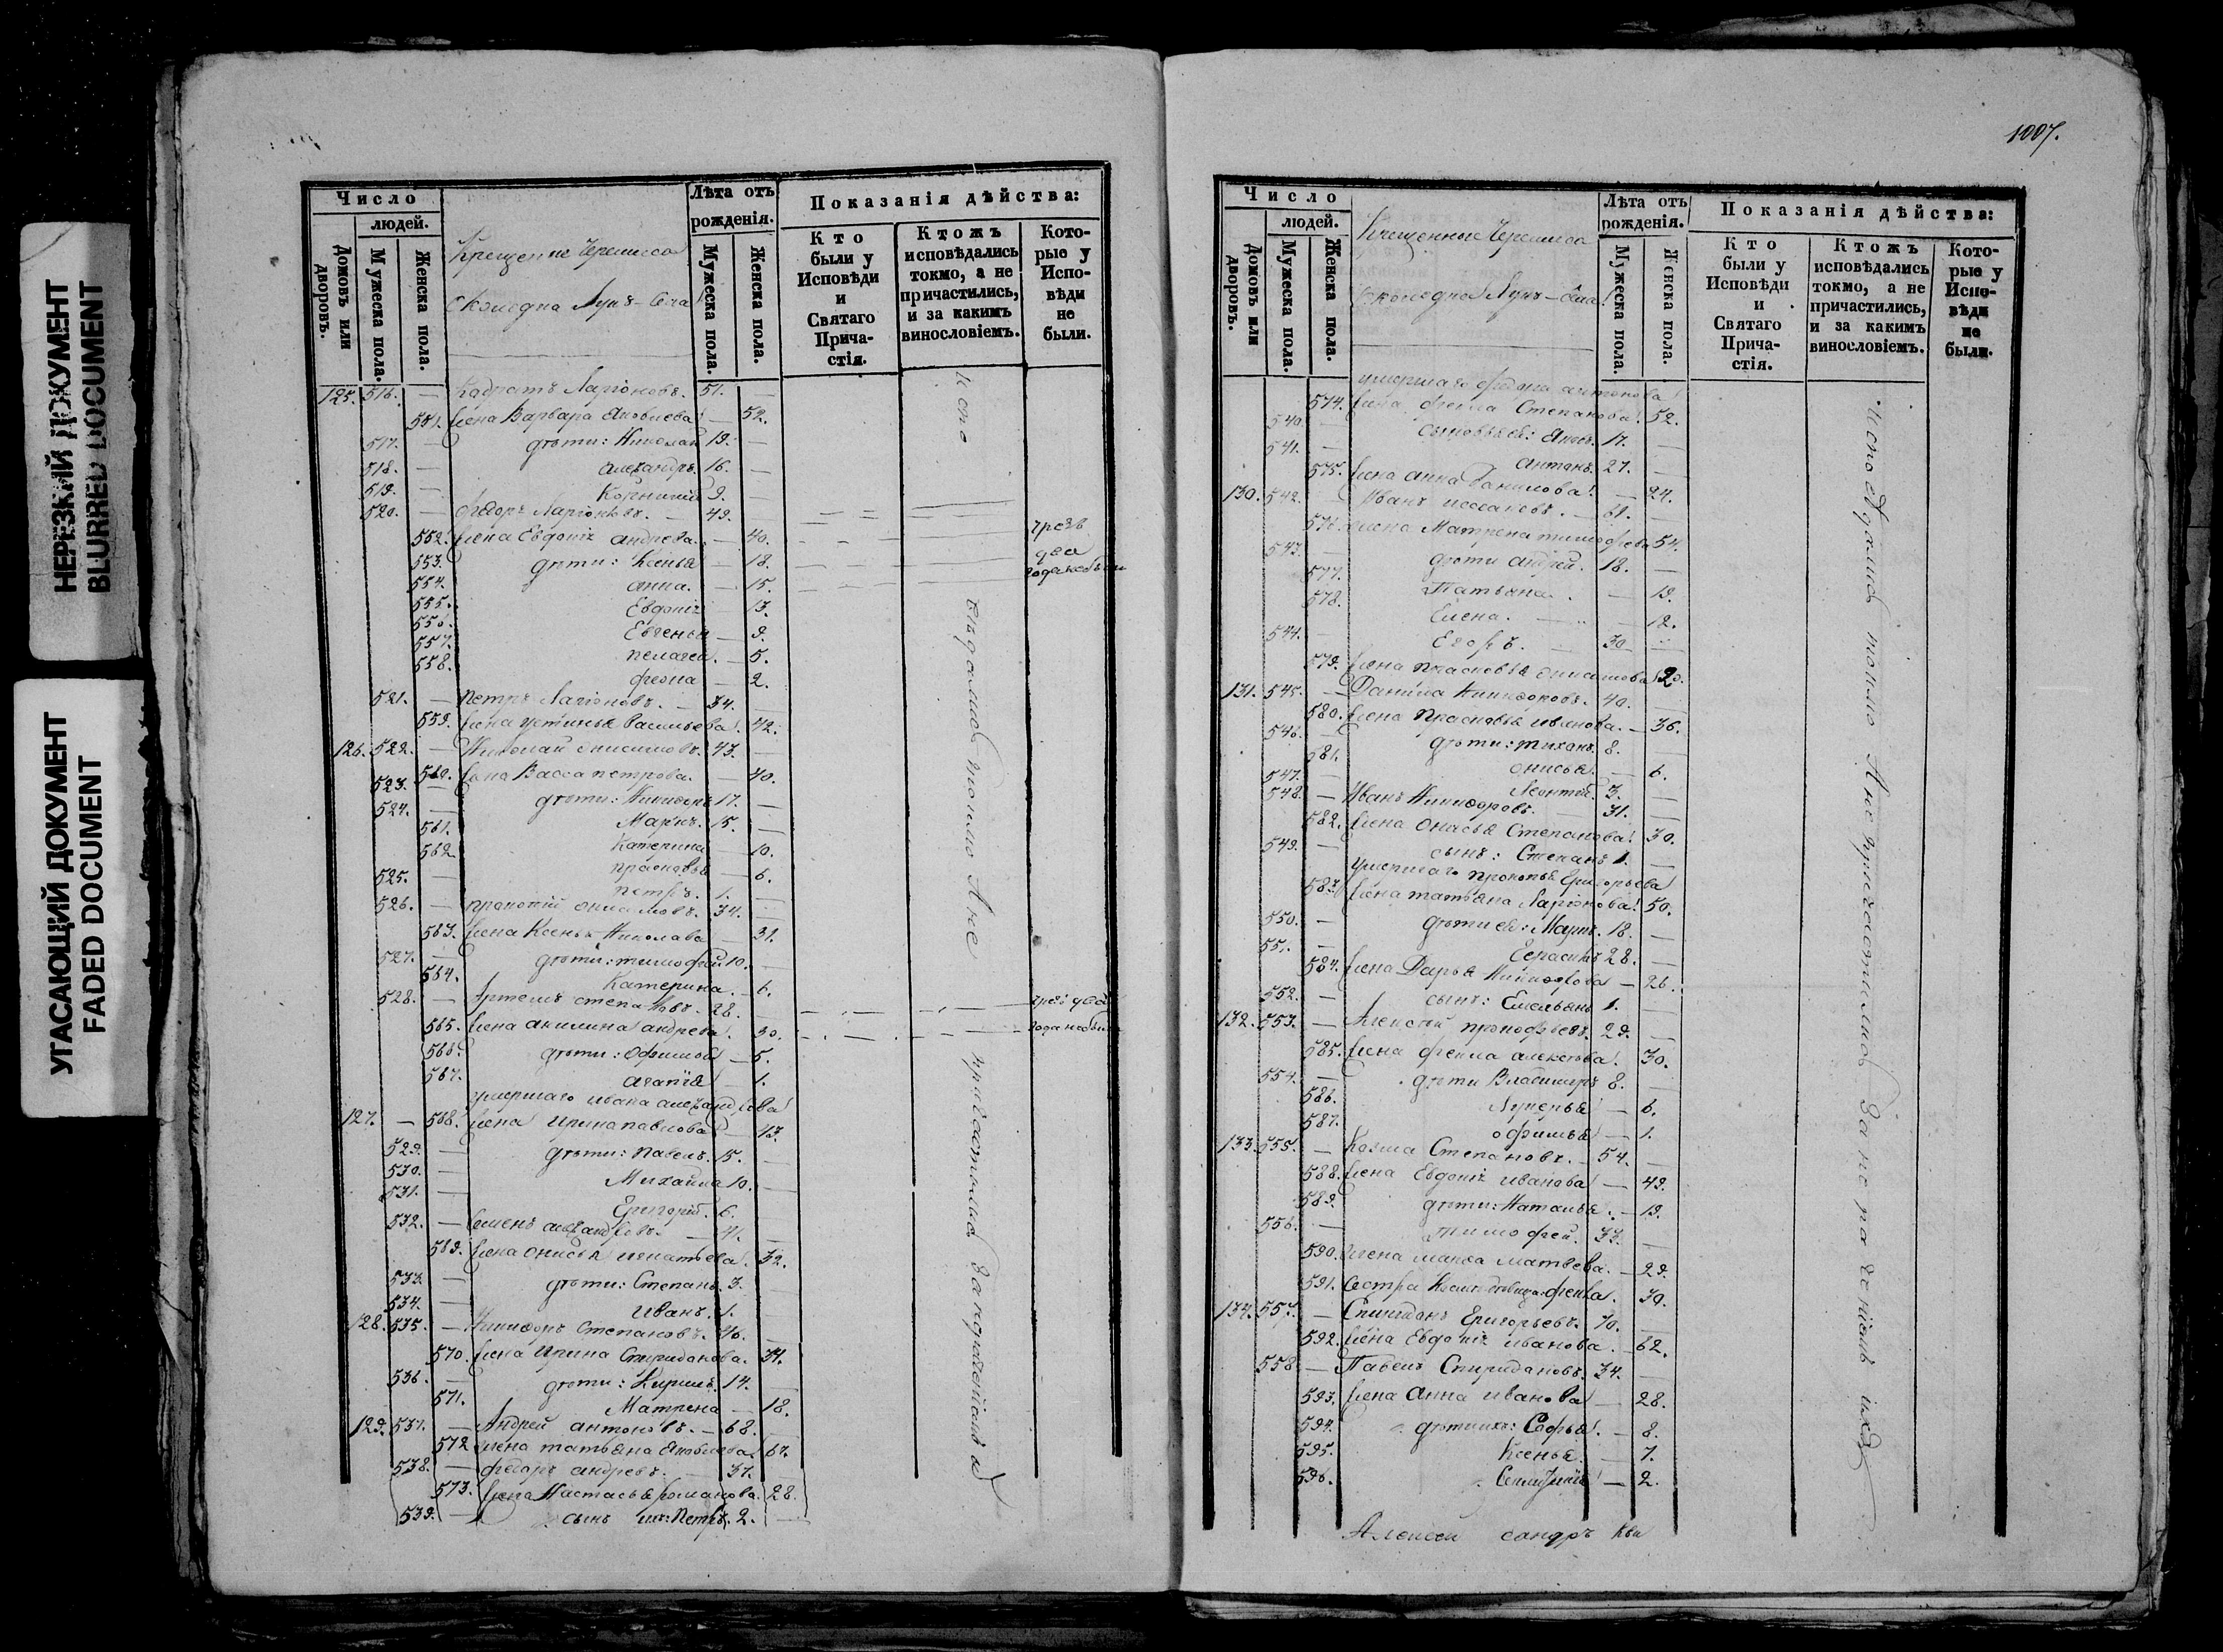 НЕРЕЗКИЙ ДОКУМЕНТ
BLURRED DOCUMENT
УГАСАЮЩИЙ ДОКУМЕНТ
FADED DOCUMENT
Число
людей.
Домовъ или дворовъ.
Мужеска пола.
Женска пола.
Лѣта отъ рожденія.
Мужеска пола.
Женска пола.
Показанія дѣйства:
Кто были у Исповѣди и Святаго Прича-стія.
Ктожъ исповѣдались токмо, а не причастились, и за какимъ винословіемъ.
Кото-рые у Испо-вѣди не были.
Лупъ-
125. 516. — Ларіоновъ. 51. —
551. жена Варвара Яковлева 52.
517. — дѣти: Николай 19. —
518. — александръ. 16. —
519. — 9. —
520. — Ларіоновъ. — 49. —
552. жена Евдокія андрева. — 40. чрезъ
553. дѣти: Ксенья — 18. два
554. анна. — 15.
555. Евдокія 13.
556. Евгенья — 9.
557. пелагея. — 5.
558. — 2.
521. — Петръ Ларіоновъ. — 34. —
559. жена устинья васильева. 42.
126. 522. — Николай онисимовъ. 43. —
560. жена Васса петрова. — 40.
523. — дѣти: 17. —
524. — Маркъ. 15. —
561. Катерина — 10.
562. прасковья — 6.
525. — петръ. 1. —
526. — прокопій онисимовъ. 34. —
563. жена Ксенья Николава — 31.
527. — дѣти: тимофей 10. —
564. Катерина. — 6.
528. — Артемъ степановъ. 28. — чрезъ два
565. жена акилина андрева. 30. года небыли
566. дѣти: Офимья — 5.
567. агапія — 1.
умершаго ивана александрова
127. — 568. жена Ирина павлова — 43.
529. — дѣти: павелъ. 15. —
530. — Михайла 10. —
531. — Григорій. 6.
532. — Семенъ александровъ. — 41. —
569. жена онисья игнатьева. 32.
533. — дѣти: Степанъ. 3.
534. — Иванъ. 1.
128. 535. — Степановъ. 46. —
570. жена Ирина Спиридонова. 37.
536. — дѣти: 14. —
571. Матрена — 18.
129. 537. — Андрей антоновъ. — 68. —
572. жена татьяна Яковлева 67.
538. — федоръ андревъ. — 37. —
573. жена Настасья романова. 28.
539. — сынъ ихъ: Петръ. 2. —
исповѣдались токмо А не причастились за
1007.
Число
людей.
Домовъ или дворовъ.
Мужеска пола.
Женска пола.
Крещенные Черемиса
Лупъ-
Лѣта отъ рожденія.
Мужеска пола.
Женска пола.
Показанія дѣйства:
Кто были у Исповѣди и Святаго Прича-стія.
Ктожъ исповѣдались токмо, а не причастились, и за какимъ винословіемъ.
Кото-рые у Испо-вѣди не были.
умершаго антонова
574. жена Степанова. 52.
540. — 17. —
541. — антонъ. 27. —
575. жена анна данилова. — 24.
130. 542. — Иванъ — 61. —
576. жена Матрена тимофева 54.
543. — дѣти андрей. 18. —
577. Татьяна. — 19.
578. Елена. — 12.
544. — Егоръ. 30
579. жена прасковья онисимова 20.
131. 545. — Данила 40. —
580. жена Прасковья иванова. — 36.
546. — дѣти: тихонъ. 8. —
581. онисья. — 6.
547. — Леонтій. 3. —
548. — Иванъ 31. —
582. жена Степанова. 30.
549. — сынъ: Степанъ 1. —
умершаго прокопья Григорьева
583. жена татьяна Ларіонова. 50.
550. — дѣти ея: Маркъ. 18. —
551. — 28. —
584. жена Дарья — 26.
552. — сынъ: Емельянъ 1. —
132. 553. — Алексѣй 29. —
585. жена алексѣева. 30.
554. — дѣти Владимиръ 8. —
586. Лукерья — 6.
587. офимья — 1.
133. 555. — Козма Степановъ. — 54. —
588. жена Евдокія иванова — 49.
589. дѣти: Наталья. — 19.
556. — тимофей. 33. —
590. жена матвева. — 29.
591. Сестра 30.
134. 557. — Спиридонъ Григорьевъ. 70. —
592. жена Евдокія иванова. — 62.
558. — Павелъ Спиридоновъ. 34. —
593. жена Анна иванова — 28.
594. дѣти ихъ: Софья. — 8.
595. Ксенья. — 7.
596. — 2.
исповѣдались токмо А не причастились за нерадѣніемъ ихъ
Алексей